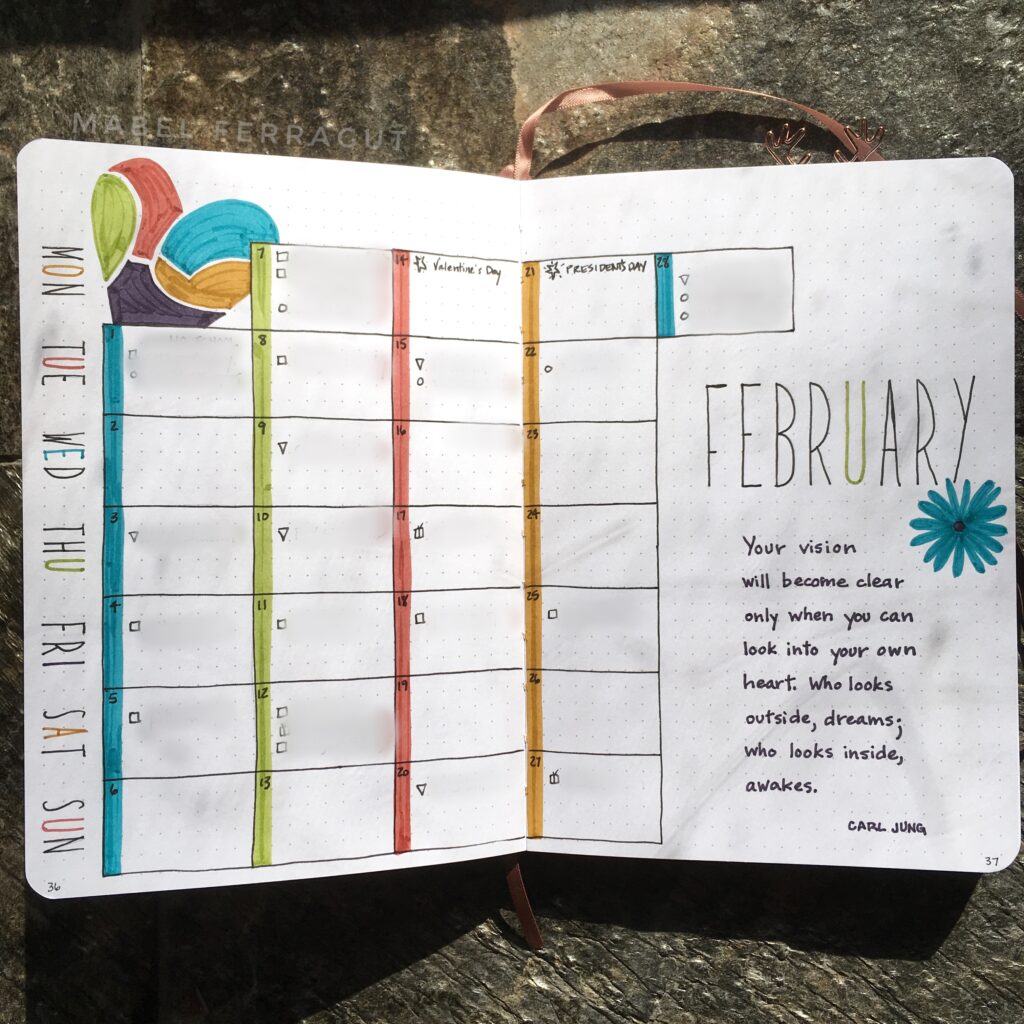 MABEL FERRAGUT
MON TUE WED THU FRI SAT SUN
1
2
3
4
5
6
7
8
9
10
11
12
13
14 Valentine's Day
15
16
17
18
19
20
21 PRESIDENT'S DAY
22
23
24
25
26
27
28
FEBRUARY
Your vision
will become clear
only when you can
look into your own
heart. Who looks
outside, dreams;
who looks inside,
awakes.
CARL JUNG
36
37